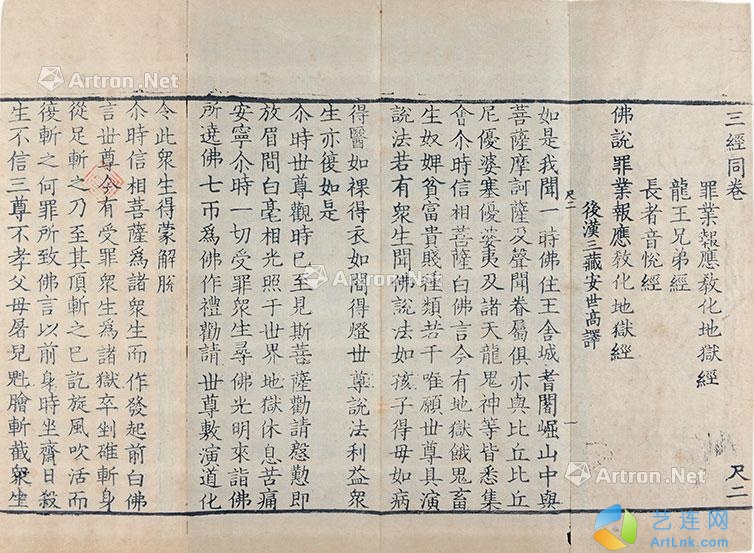 三經同卷
罪業報應教化地獄經
龍王兄弟經
長者音悅經
尺二
佛說罪業報應教化地獄經
後漢三藏安世高譯
尺二
一
如是我聞一時佛住王舍城耆闍崛山中與
菩薩摩訶薩及聲聞眷屬俱亦與比丘比丘
尼優婆塞優婆夷及諸天龍鬼神等皆悉集
會尒時信相菩薩白佛言今有地獄餓鬼畜
生奴婢貧富貴賤種類若干唯願世尊具演
說法若有衆生聞佛說法如孩子得母如病
得醫如裸得衣如闇得燈世尊說法利益衆
生亦復如是
尒時世尊觀時已至見斯菩薩勸請慇懃即
放眉間白毫相光照于世界地獄休息苦痛
安寧尒時一切受罪衆生尋佛光明來詣佛
所遶佛七帀爲佛作禮勸請世尊敷演道化
令此衆生得蒙解脫
尒時信相菩薩爲諸衆生而作發起前白佛
言世尊今有受罪衆生爲諸獄卒剉碓斬身
從足斬之乃至其頂斬之已訖旋風吹活而
復斬之何罪所致佛言以前身時坐齋日殺
生不信三尊不孝父母屠兒魁膾斬截衆生
Artron.Net
Artron.Net
Artron.Net
Artron.Net
艺连网
ArtLnk.com